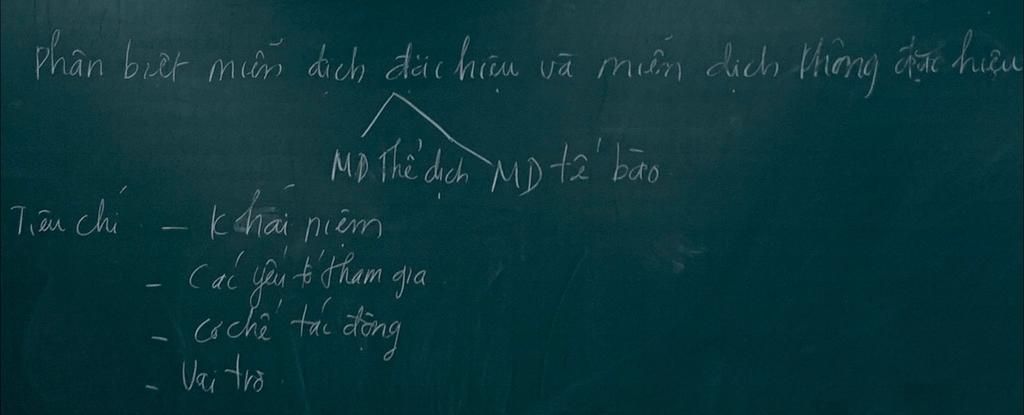 Phân biệt miễn dịch đặc hiệu và miễn dịch không đặc hiệu
MD thể dịch MD tế bào
Tiêu chí - Khái niệm
- Các yếu tố tham gia
- Cơ chế tác động
- Vai trò